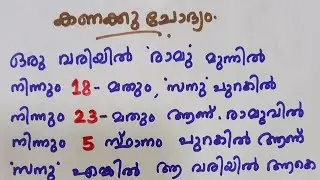 കണക്കു ചോദ്യം.
ഒരു വരിയിൽ 'രാമു' മുന്നിൽ
നിന്നും 18-മതും, 'സനു' പുറകിൽ
നിന്നും 23-മതും ആണ്. രാമുവിൽ
നിന്നും 5 സ്ഥാനം പുറകിൽ ആണ്
'സനു' എങ്കിൽ ആ വരിയിൽ ആകെ